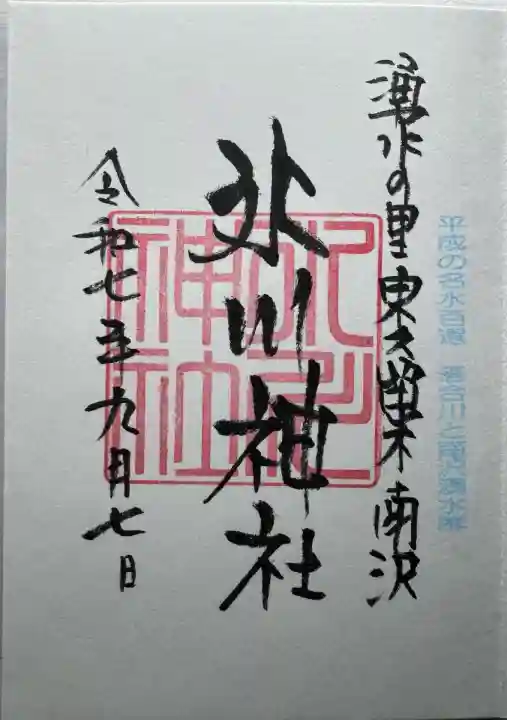 平成の名水百選 落合川と南沢湧水群
湧水の里 東久留米 南沢
氷川神社
氷川神社
令和七年九月七日